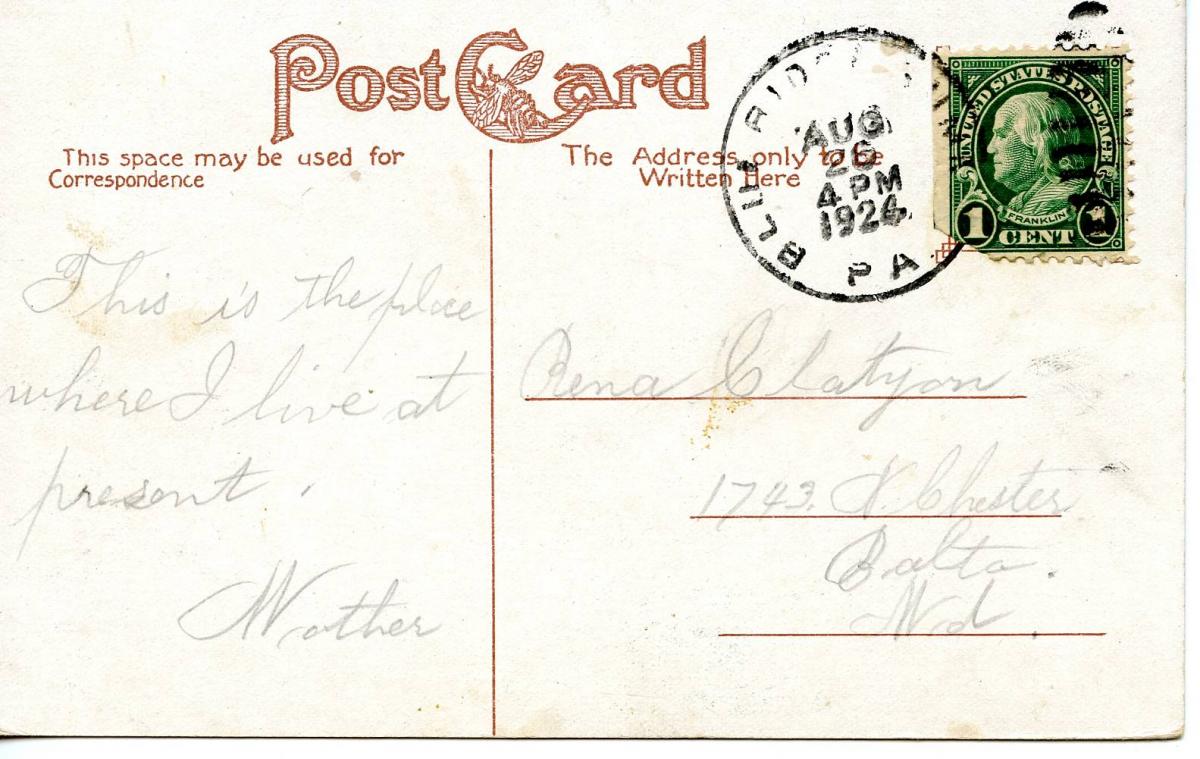 Post Card
This space may be used for
Correspondence
The Address only to be
Written Here
AUG
26
4 PM
1924
PA
UNITED STATES POSTAGE
FRANKLIN
1 CENT 1
This is the place
where I live at
present.
Mother
Rena Clatyon
1743. N. Chester
Balto.
Md.